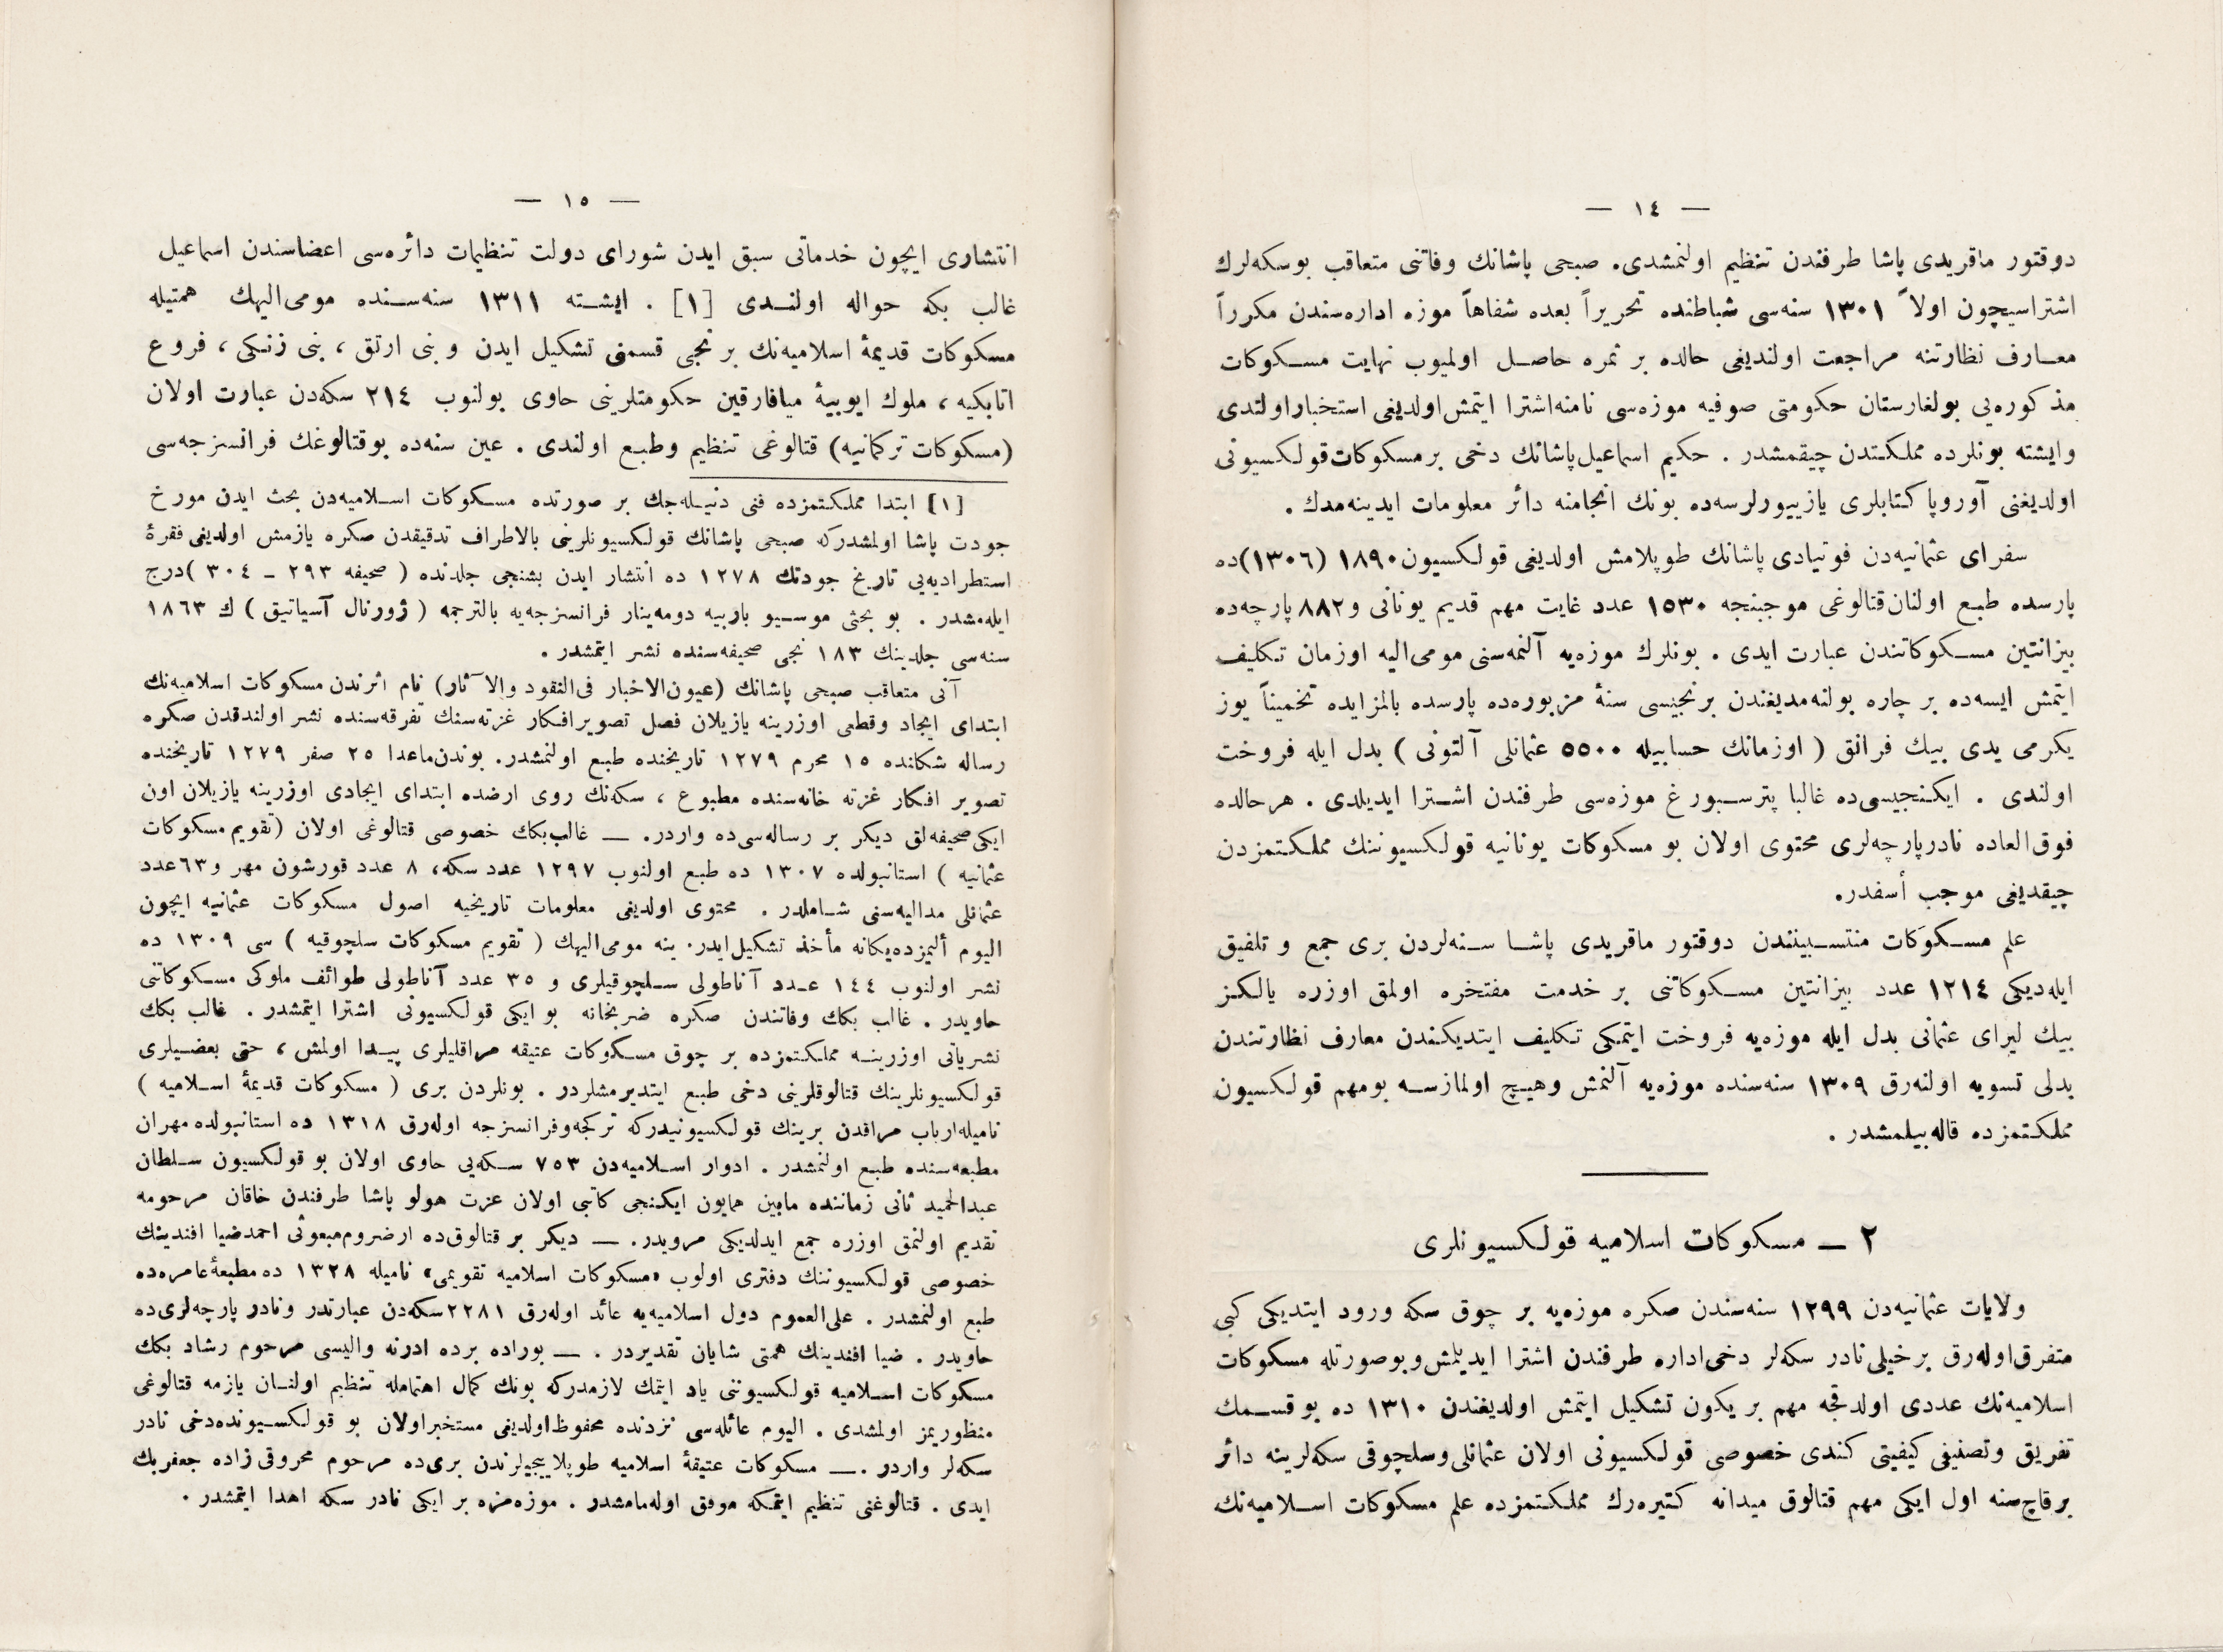 — ١٤ —
دوقتور ماقریدی پاشا طرفندن تنظیم اولنمشدی. صبحی پاشانك وفاتنی متعاقب بوسکه‌لرك
اشتراسیچون اولاً ١٣٠١ سنه‌سی شباطنده تحریراً بعده شفاهاً موزه اداره‌سندن مکرراً
معـارف نظارتنه مراجعت اولندیغی حالده بر ثمره حاصـل اولمیوب نهایت مسـکوکات
مذکوره‌یی بولغارستان حکومتی صوفیه موزه‌سی نامنه‌اشترا ایتمش‌اولدیغی استخباراولندی
وایشته بونلرده مملکتدن چیقمشدر . حکیم اسماعیل‌پاشانك دخی برمسکوکات‌قولکسیونی
اولدیغنی آوروپا کتابلری یازییورلرسه‌ده بونك انجامنه دائر معلومات ایدینه‌مدك .
سفرای عثمانیه‌دن فوتیادی پاشانك طوپلامش اولدیغی قولکسیون ١٨٩٠ (١٣٠٦)ده
پارسده طبع اولنان‌قتالوغی موجبنجه ١٥٣٠ عدد غایت مهم قدیم یونانی و ٨٨٢پارچه‌ده
بیزانتین مسـکوکاتندن عبارت ایدی . بونلرك موزه‌یه آلنمه‌سنی مومی‌الیه اوزمان تکلیف
ایتمش ایسه‌ده بر چاره بولنه‌مدیغندن برنجیسی سنۀ مزبوره‌ده پارسده بالمزایده تخمیناً یوز
یکرمی یدی بیك فرانق ( اوزمانك حسابیله ٥٥٠٠ عثمانلی آلتونی ) بدل ایله فروخت
اولندی . ایکنجیسی‌ده غالبا پترسـبورغ موزه‌سی طرفندن اشـترا ایدیلدی . هرحالده
فوق‌العاده نادرپارچه‌لری محتوی اولان بو مسکوکات یونانیه قولکسیوننك مملکتمزدن
چیقدیغی موجب أسفدر.
علم مسـکوکات منتسـبیندن دوقتور ماقریدی پاشـا سـنه‌لردن بری جمع و تلفیق
ایله‌دیکی ١٢١٤ عدد بیزانتین مسـکوکاتنی بر خدمت مفتخره اولمق اوزره یالکز
بیك لیرای عثمانی بدل ایله موزه‌یه فروخت ایتمکی تکلیف ایتدیکندن معارف نظارتندن
بدلی تسویه اولنه‌رق ١٣٠٩ سنه‌سنده موزه‌یه آلنمش وهیچ اولمازسـه بومهم قولکسیون
مملکتمزده قاله‌بیلمشدر .
٢ — مسکوکات اسلامیه قولکسیونلری
ولایات عثمانیه‌دن ١٢٩٩ سنه‌سندن صکره موزه‌یه بر چوق سکه ورود ایتدیکی کبی
متفرق‌اوله‌رق برخیلی‌نادر سکه‌لر دخی‌اداره طرفندن اشترا ایدیلمش‌وبوصورتله مسکوکات
اسلامیه‌نك عددی اولدقجه مهم بریکون تشکیل ایتمش اولدیغندن ١٣١٠ ده بوقسـمك
تفریق وتصنیفی کیفیتی کندی خصوصی قولکسیونی اولان عثمانلی‌وسلچوقی سکه‌لرینه دائر
برقاچ‌سنه اول ایکی مهم قتالوق میدانه کتیره‌رك مملکتمزده علم مسکوکات اسـلامیه‌نك
— ١٥ —
انتشاری ایچون خدماتی سبق ایدن شورای دولت تنظیمات دائره‌سی اعضاسندن اسماعیل
غالب بکه حواله اولنـدی [١] . ایشـته ١٣١١ سنه‌سـنده مومی‌الیهك همتیله
مسکوکات قدیمۀ اسلامیه‌نك برنجی قسمنی تشکیل ایدن و بنی ارتق ، بنی زنکی ، فروع
اتابکیه ، ملوك ایوبیۀ میافارقین حکومتلرینی حاوی بولنوب ٢١٤ سکه‌دن عبارت اولان
(مسکوکات ترکمانیه) قتالوغی تنظیم وطبع اولندی . عین سنه‌ده بوقتالوغك فرانسزجه‌سی
[١] ابتدا مملکتمزده فنی دنیـله‌جك بر صورتده مسـکوکات اسـلامیه‌دن بحث ایدن مورخ
جودت پاشا اولمشدرکه صبحی پاشانك قولکسیونلرینی بالاطراف تدقیقدن صکره یازمش اولدیغی فقرۀ
استطرادیه‌یی تاریخ جودتك ١٢٧٨ ده انتشار ایدن بشنجی جلدنده ( صحیفه ٢٩٣ ـ ٣٠٤ )درج
ایله‌مشدر . بو بحثی موسـیو باربیه دومه‌ینار فرانسزجه‌یه بالترجمه ( ژورنال آسیاتیق ) ك ١٨٦٣
سنه‌سی جلدینك ١٨٣ نجی صحیفه‌سنده نشر ایتمشدر .
آنی متعاقب صبحی پاشانك (عیون‌الاخبار فی‌النقود والآثار) نام اثرندن مسکوکات اسلامیه‌نك
ابتدای ایجاد وقطعی اوزرینه یازیلان فصل تصویرافکار غزته‌سنك تفرقه‌سنده نشر اولندقدن صکره
رساله شکلنده ١٥ محرم ١٢٧٩ تاریخنده طبع اولنمشدر. بوندن‌ماعدا ٢٥ صفر ١٢٧٩ تاریخنده
تصویر افکار غزته خانه‌سنده مطبوع ، سکه‌نك روی ارضده ابتدای ایجادی اوزرینه یازیلان اون
ایکی‌صحیفه‌لق دیکر بر رساله‌سی‌ده واردر. — غالب‌بکك خصوصی قتالوغی اولان (تقویم مسکوکات
عثمانیه ) استانبولده ١٣٠٧ ده طبع اولنوب ١٢٩٧ عدد سکه، ٨ عدد قورشون مهر و ٦٣عدد
عثمانلی مدالیه‌سنی شـاملدر . محتوی اولدیغی معلومات تاریخیه اصول مسکوکات عثمانیه ایچون
الیوم ألیمزده‌یکانه مأخذ تشکیل‌ایدر. ینه مومی‌الیهك ( تقویم مسکوکات سلچوقیه ) سی ١٣٠٩ ده
نشر اولنوب ١٤٤ عـدد آناطولی سـلچوقیلری و ٣٥ عدد آناطولی طوائف ملوکی مسـکوکاتنی
حاویدر . غالب بکك وفاتندن صکره ضربخانه بو ایکی قولکسیونی اشترا ایتمشدر . غالب بکك
نشریاتی اوزرینـه مملکتمزده بر چوق مسـکوکات عتیقه مراقلیلری پیـدا اولمش ، حتی بعضـیلری
قولکسیونلرینك قتالوقلرینی دخی طبع ایتدیرمشلردر . بونلردن بری ( مسکوکات قدیمۀ اسـلامیه )
نامیله‌ارباب مراقدن برینك قولکسیونیدرکه ترکجه‌وفرانسزجه اوله‌رق ١٣١٨ ده استانبولده مهران
مطبعه‌سنده طبع اولنمشدر . ادوار اسـلامیه‌دن ٧٥٣ سـکه‌یی حاوی اولان بو قولکسیون سـلطان
عبدالحمید ثانی زماننده مابین همایون ایکنجی کاتبی اولان عزت هولو پاشا طرفندن خاقان مرحومه
تقدیم اولنمق اوزره جمع ایدلدیکی مرویدر. — دیکر بر قتالوق‌ده ارضروم‌مبعوثی احمدضیا افندینك
خصوصی قولکسیوننك دفتری اولوب «مسکوکات اسلامیه تقویمی» نامیله ١٣٢٨ ده مطبعۀعامره‌ده
طبع اولنمشدر . علی‌العموم دول اسلامیه‌یه عائد اوله‌رق ٢٢٨١سکه‌دن عبارتدر ونادر پارچه‌لری‌ده
حاویدر . ضیا افندینك همتی شایان تقدیردر . — بوراده برده ادرنه والیسی مرحوم رشاد بکك
مسکوکات اسـلامیه قولکسیوننی یاد ایتمك لازمدرکه بونك کمال اهتمامله تنظیم اولنـان یازمه قتالوغی
منظوریمز اولمشدی . الیوم عائله‌سی نزدنده محفوظ‌اولدیغی مستخبراولان بو قولکسـیونده‌دخی نادر
سکه‌لر واردر .— مسکوکات عتیقۀ اسلامیه طوپلاییجیلرندن بری‌ده مرحوم محروقی زاده جعفربك
ایدی . قتالوغنی تنظیم ایتمکه موفق اوله‌مامشدر . موزه‌مزه بر ایکی نادر سکه اهدا ایتمشدر .